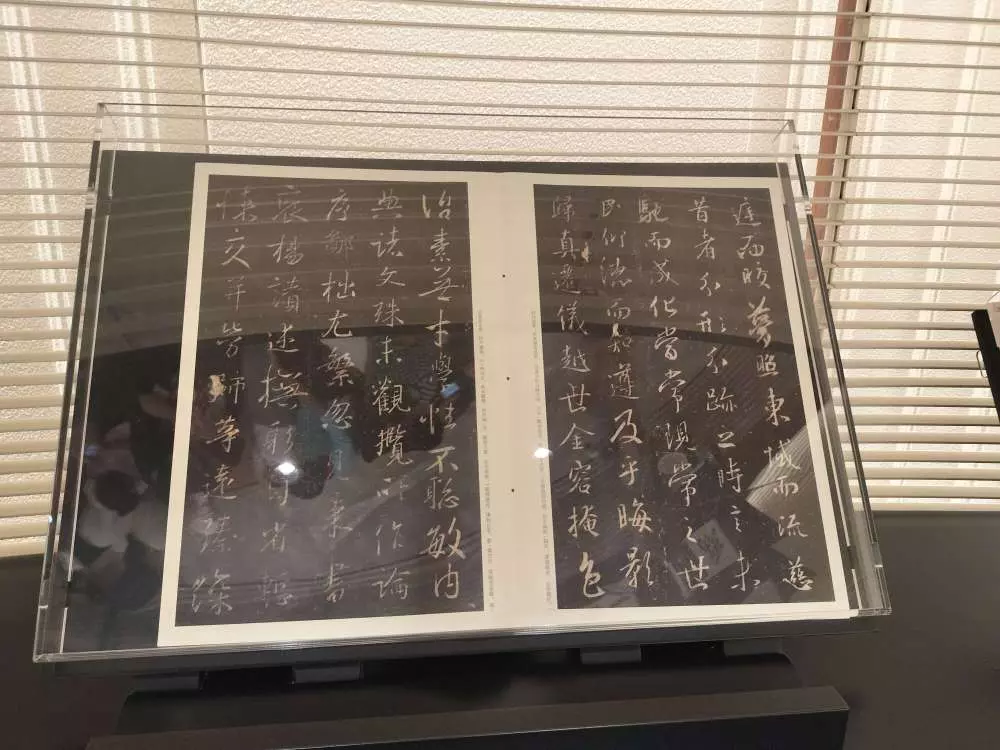 庭而皎夢照東域而流慈
昔者分形分跡之時言未
馳而成化當常現常之世
民仰德而知遵及乎晦影
歸真遷儀越世金容掩色
治素無才學性不聰敏内
典諸文殊未觀攬所作論
序鄙拙尤繁忽見来書
褒揚讃述撫躬自省慙
悚交并勞師等遠臻深